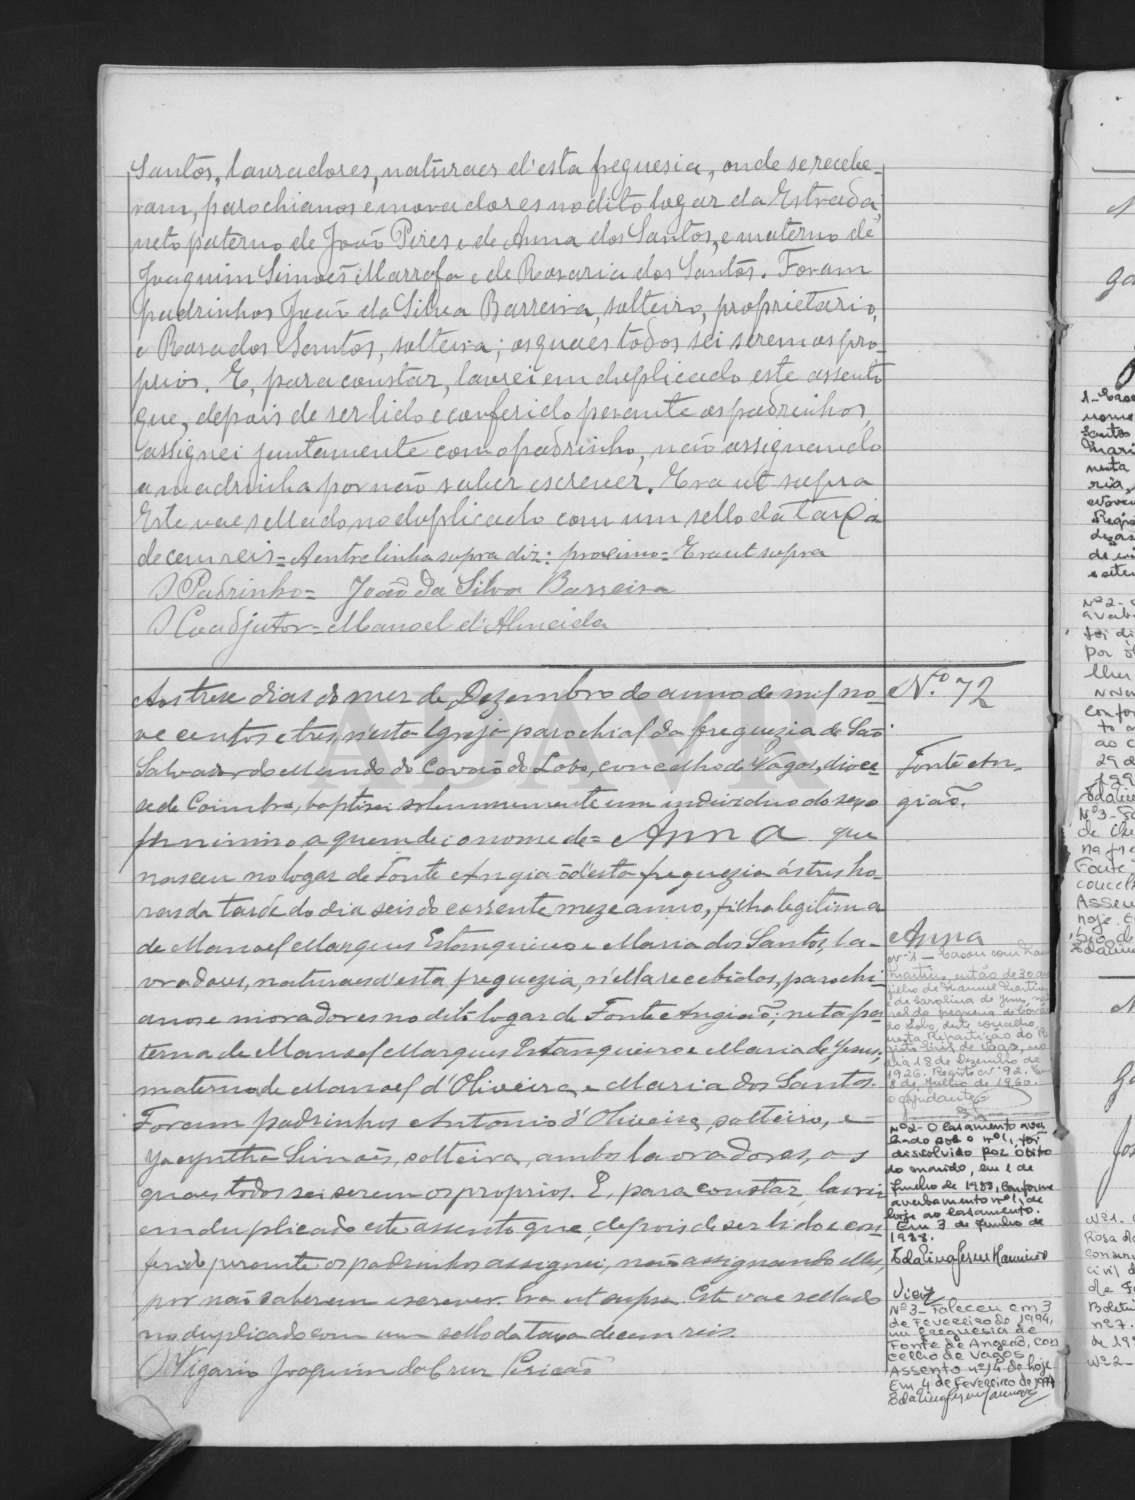 Santos, lavradores, naturaes d'esta freguesia, onde se recebe-
ram, parochianos e moradores no dito logar da Estrada,
neto paterno de João Pires e de Anna dos Santos, e materno de
Joaquim Simões Marrafa e de Rosaria dos Santos. Foram
padrinhos João da Silva Barreira, solteiro, proprietario,
e Rosa dos Santos, solteira; os quaes todos sei serem os pro-
prios. E, para constar, lavrei em duplicado este assento
que, depois de ser lido e conferido perante os padrinhos,
assignei juntamente com o padrinho, não assignando
a madrinha por não saber escrever. Era ut supra
Este vae sellado no duplicado com um sello da taxa
de cem reis = A entrelinha supra diz: proximo = Era ut supra
O Padrinho = João da Silva Barreira
O Coadjutor = Manoel d'Almeida
Aos treze dias do mez de Dezembro do anno de mil no-
ve centos e tres, n'esta Igreja parochial da freguezia de São
Salvador do Mundo do Covão do Lobo, concelho de Vagos, dioce-
se de Coimbra, baptisei solemnemente um individuo do sexo
feminino a quem dei o nome de = Anna que
nasceu no logar de Fonte Angião d'esta freguezia ás tres ho-
ras da tarde do dia seis do corrente mez e anno, filha legitima
de Manoel Marques Estanqueiro e Maria dos Santos, la-
vradores, naturaes d'esta freguezia, n'ella recebidos, parochi-
anos e moradores no dito logar de Fonte Angião; neta pa-
terna de Manoel Marques Estanqueiro e Maria de Jesus,
materna de Manoel d'Oliveira e Maria dos Santos.
Foram padrinhos Antonio d'Oliveira, solteiro, e
Jacyntha Simões, solteira, ambos lavradores, os
quaes todos sei serem os proprios. E, para constar, lavrei
em duplicado este assento que, depois de ser lido e con-
ferido perante os padrinhos assignei, não assignando elles
por não saberem escrever. Era ut supra. Este vae sellado
no duplicado com um sello da taxa de cem reis.
O Vigario Joaquim da Cruz Pericão
N.º 72
Fonte An-
gião.
Anna
Nº 1 - Casou com
Martins, então de 30
filho de Manuel Martins
e de Carolina de Jesus, na-
tural da freguesia de Covão
do Lobo, deste concelho,
nesta Repartição do Re-
gisto Civil de Vagos, no
dia 18 de Dezembro de
1926. Registo nº 92. Em
de Julho de 1960.
O Ajudante,
Nº 2 - O casamento aver-
bado sob o nº 1, foi
dissolvido por óbito
do marido, em 1 de
Junho de 1988, conforme
averbamento nº 1, de
hoje ao casamento.
Em 3 de Junho de
1988.
Nº 3 - Faleceu em 3
de Fevereiro de 1994,
na freguesia de
Fonte de Angeão, con-
celho de Vagos
Assento nº 14 de hoje
Em 4 de Fevereiro de 1994
ADAVR